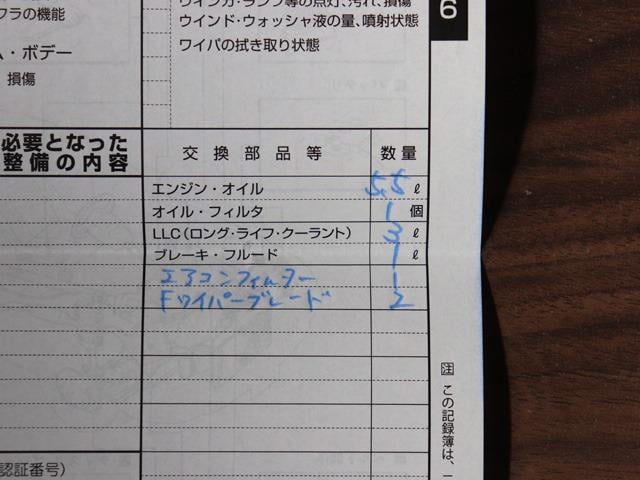 フラの機能
ウインカ・ランプ等の点灯、汚れ、損傷
ウインド・ウォッシャ液の量、噴射状態
6
ム・ボデー
ワイパの拭き取り状態
損傷
必要となった
整備の内容
交換部品等 数量
エンジン・オイル 5.5 ℓ
オイル・フィルタ 1 個
LLC（ロング・ライフ・クーラント） 3 ℓ
ブレーキ・フルード 1 ℓ
エアコンフィルター 1
Fワイパーブレード 2
注 この記録簿は、一
認証番号）